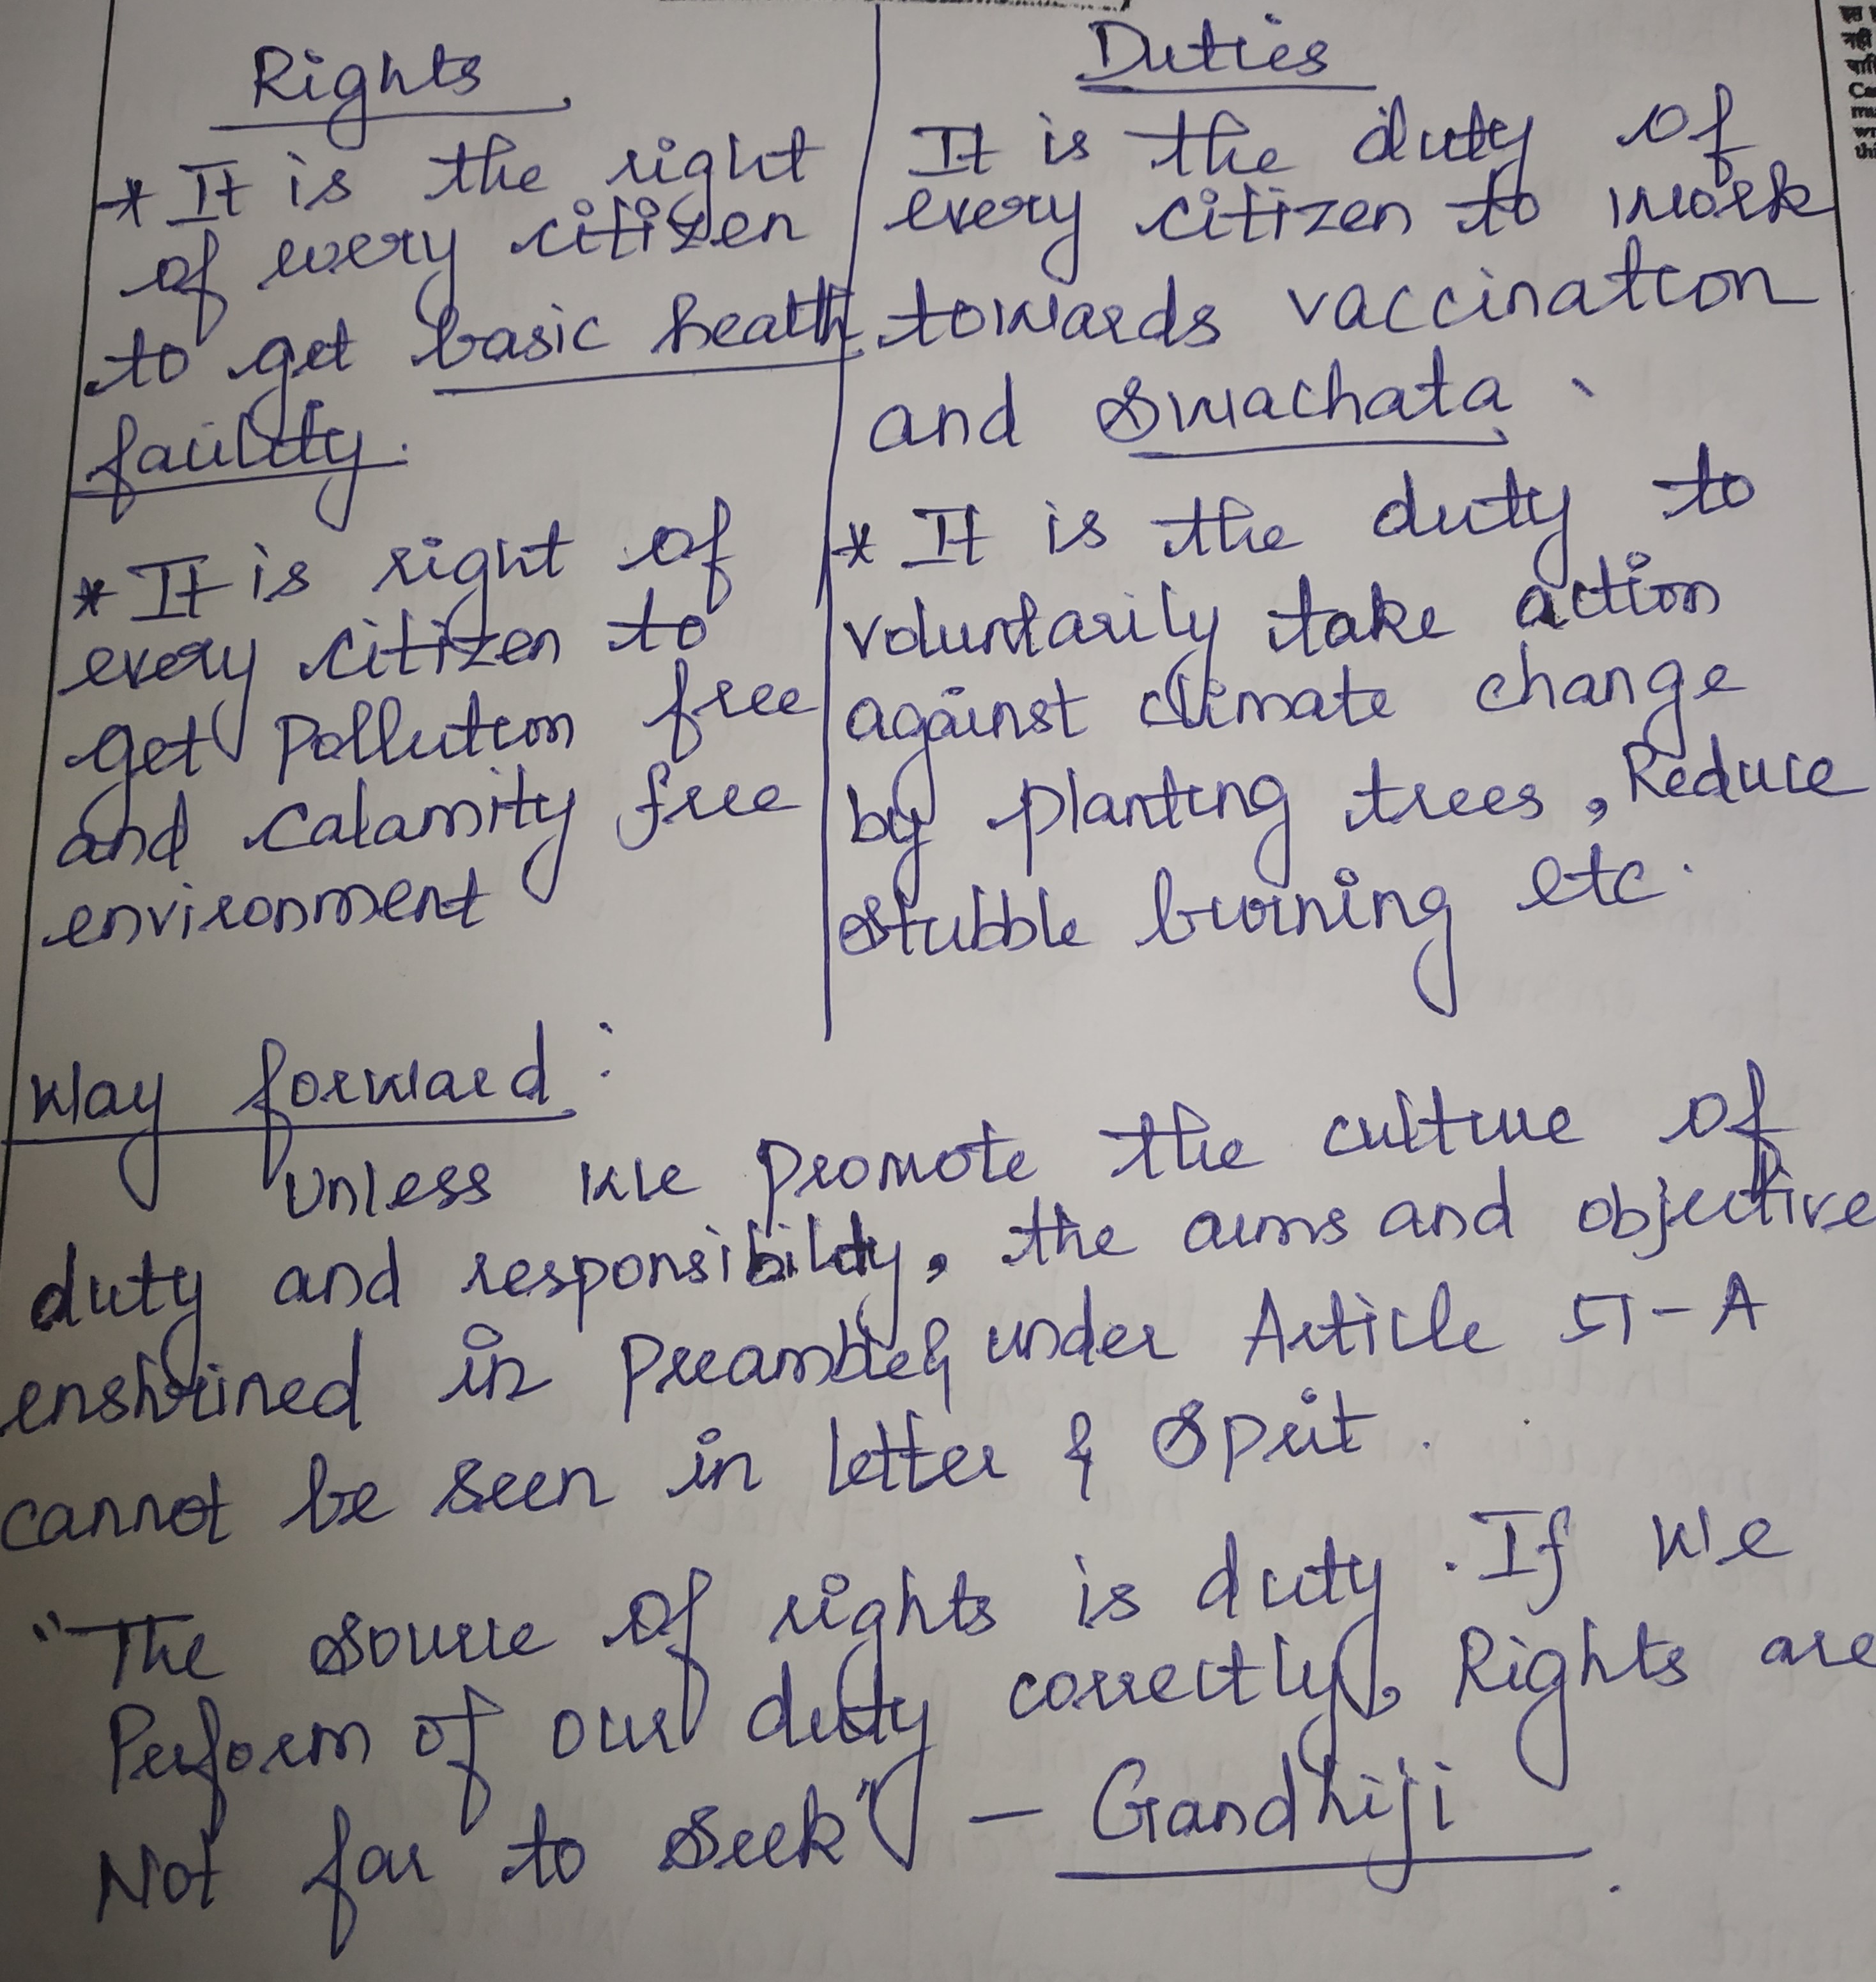 Rights
* It is the right
of every citizen
to get basic health
facility.
* It is right of
every citizen to
get Pollution free
and calamity free
environment
Duties
It is the duty of
every citizen to work
towards vaccination
and Swachata
* It is the duty to
voluntarily take action
against climate change
by planting trees, Reduce
stubble burning etc.
Way forward:
Unless we promote the culture of
duty and responsibility, the aims and objective
enshrined in Preamble & under Article 51-A
cannot be seen in letter & Spirit.
"The source of rights is duty. If we
Perform of our duty correctly, Rights are
Not far to seek" - Gandhiji